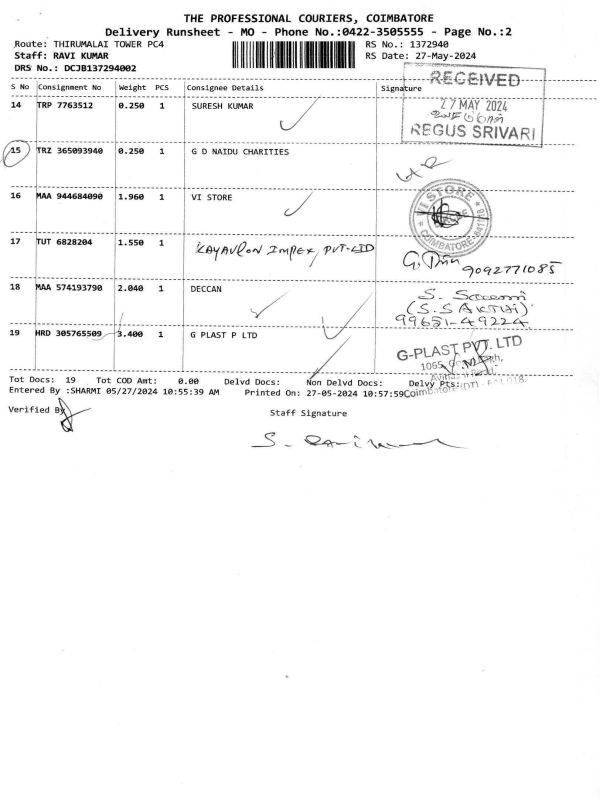 THE PROFESSIONAL COURIERS, COIMBATORE
Delivery Runsheet - MO - Phone No.:0422-3505555 - Page No.:2
Route: THIRUMALAI TOWER PC4 RS No.: 1372940
Staff: RAVI KUMAR RS Date: 27-May-2024
DRS No.: DCJB137294002
S No Consignment No Weight PCS Consignee Details Signature
RECEIVED
27 MAY 2024
REGUS SRIVARI
14 TRP 7763512 0.250 1 SURESH KUMAR
15 TRZ 365093940 0.250 1 G D NAIDU CHARITIES
16 MAA 944684090 1.960 1 VI STORE
VI STORE
COIMBATORE
17 TUT 6828204 1.550 1 KAYAVLON IMPEX PVT-LTD
9092771085
18 MAA 574193790 2.040 1 DECCAN
(S.SAKTHI)
99651-49224
19 HRD 305765509 3.400 1 G PLAST P LTD
G-PLAST PVT. LTD
1065,
Tot Docs: 19 Tot COD Amt: 0.00 Delvd Docs: Non Delvd Docs: Delvy Pts:
Coimbatore
Entered By :SHARMI 05/27/2024 10:55:39 AM Printed On: 27-05-2024 10:57:59
Verified By Staff Signature